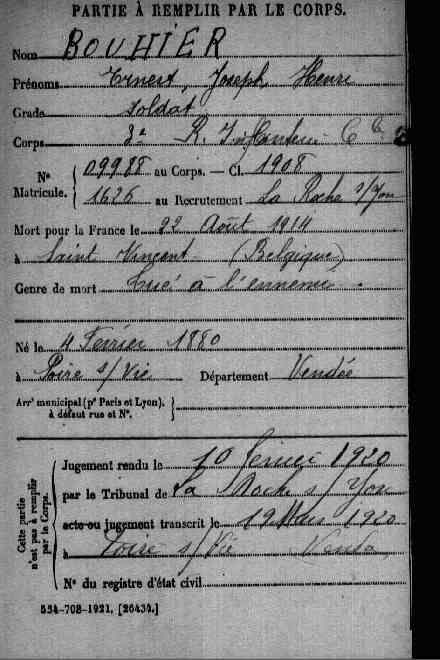 PARTIE À REMPLIR PAR LE CORPS.
Nom BOUHIER
Prénoms Ernest, Joseph, Henri
Grade soldat
Corps R. Infanterie
Nº Matricule. 09988 au Corps. — Cl. 1908
1626 au Recrutement La Roche s/Yon
Mort pour la France le 22 Août 1914
à Saint Vincent (Belgique)
Genre de mort Tué à l'ennemi.
Né le 4 Février 1880
à Poire s/Vie Département Vendée
Arrᵗ municipal (pʳ Paris et Lyon),
à défaut rue et Nº.
Cette partie n'est pas à remplir par le Corps.
Jugement rendu le 10 février 1920
par le Tribunal de La Roche s/Yon
acte ou jugement transcrit le 19 Mars 1920
à Poire s/Vie Vendée
Nº du registre d'état civil
534-708-1921. [26434.]